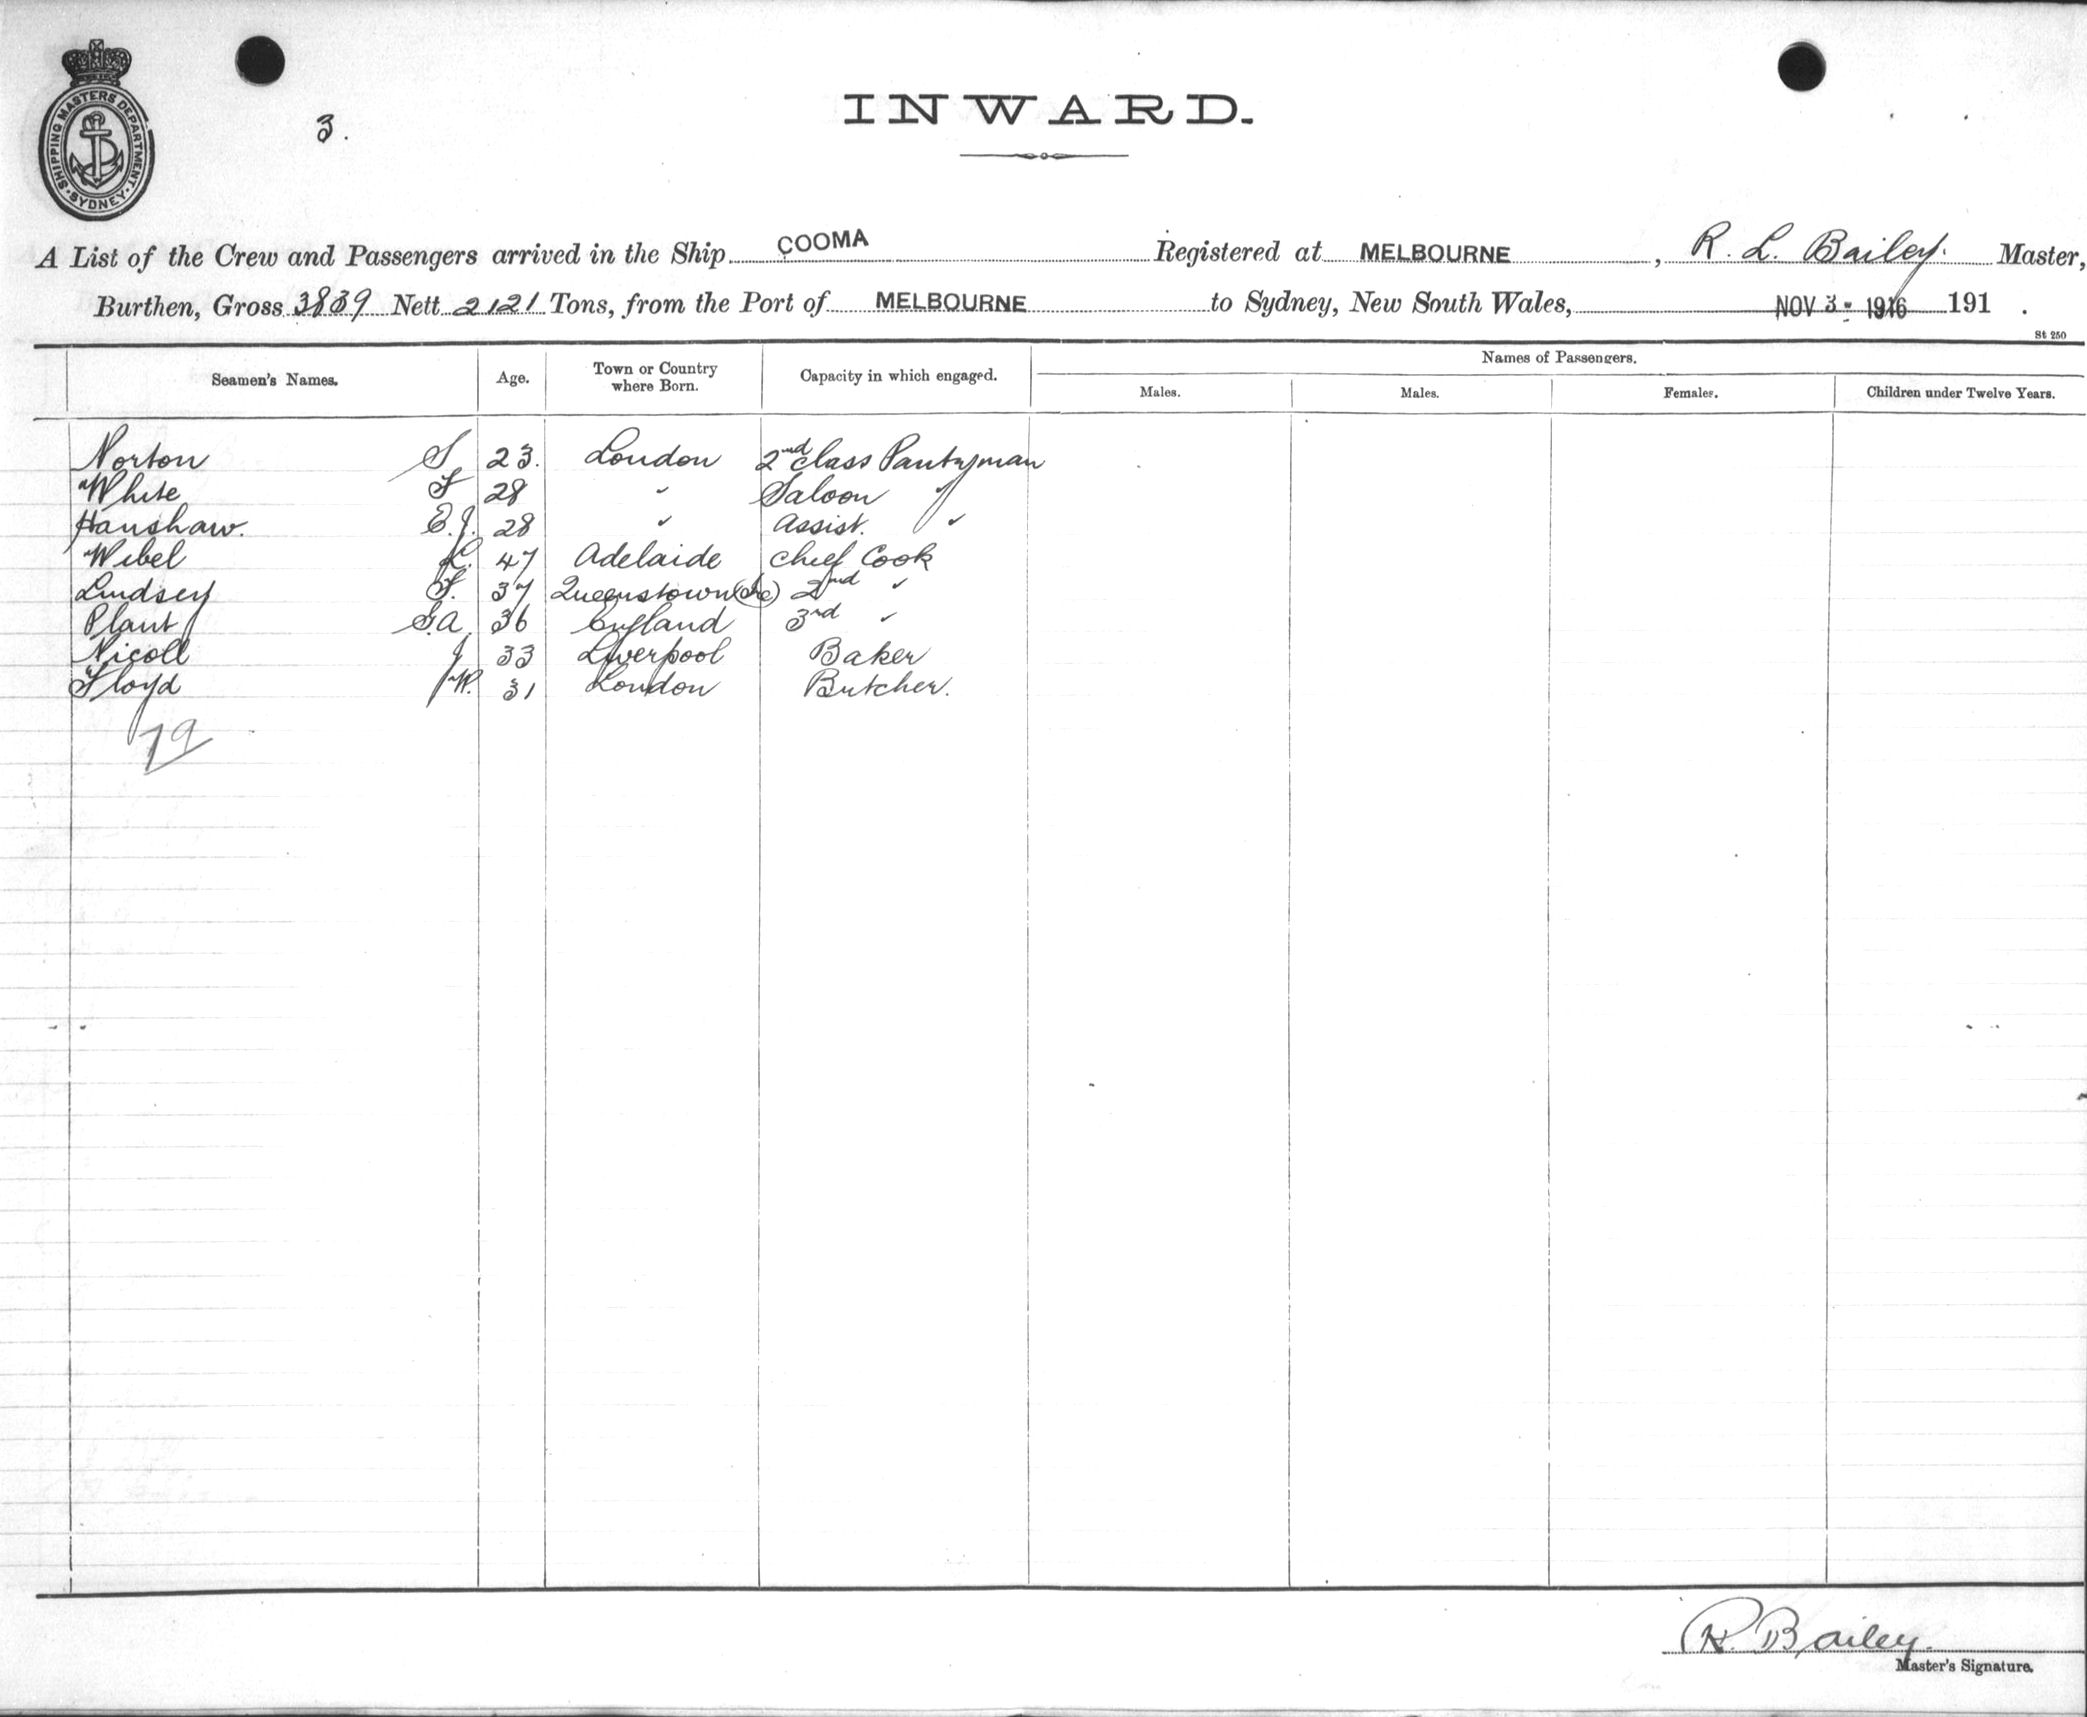 SHIPPING MASTERS DEPARTMENT. SYDNEY
3.
INWARD.
A List of the Crew and Passengers arrived in the Ship COOMA Registered at MELBOURNE, R. L. Bailey. Master,
Burthen, Gross 3839 Nett 2121 Tons, from the Port of MELBOURNE to Sydney, New South Wales, NOV 3 - 1916 191 .
St 250
Names of Passengers.
Seamen's Names. Age. Town or Country where Born. Capacity in which engaged. Males. Males. Females. Children under Twelve Years.
Norton S 23. London 2nd Class Pantryman
White F 28 " Saloon "
Hanshaw. E.J. 28 " Assist. "
Wibel L. 47 Adelaide Chief Cook
Lindsey F. 37 Queenstown (Ire) 2nd "
Plant G.A. 36 England 3rd "
Nicoll J 33 Liverpool Baker
Floyd W. 31 London Butcher.
79
R. Bailey.
Master's Signature.